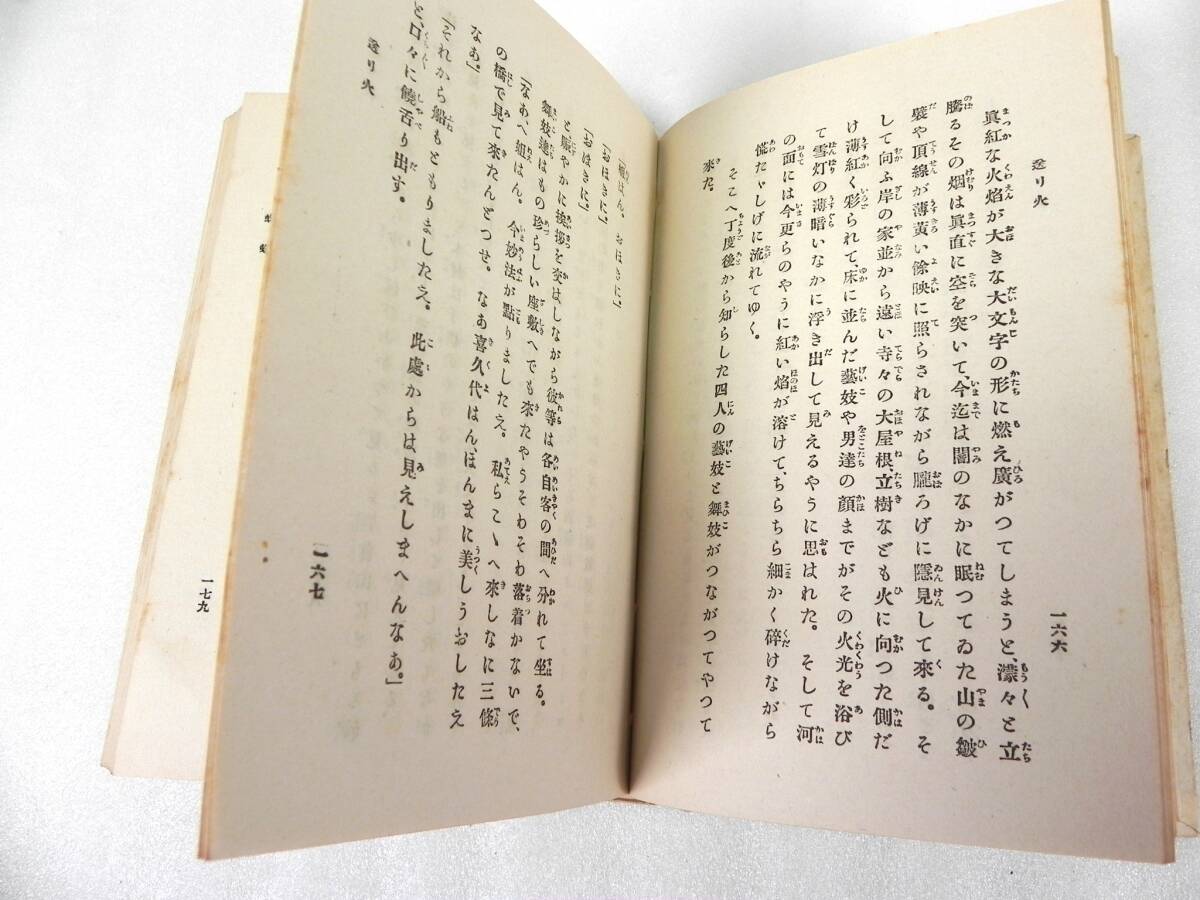 送り火
一六六
眞紅な火焰が大きな大文字の形に燃え廣がつてしまうと、濛々と立
騰るその烟は眞直に空を突いて、今迄は闇のなかに眠つてゐた山の皺
襞や頂線が薄黃い餘映に照らされながら朧ろげに隱見して來る。そ
して向ふ岸の家並から遠い寺々の大屋根、立樹なども火に向つた側だ
け薄紅く彩られて、床に並んだ藝妓や男達の顏までがその火光を浴び
て雪灯の薄暗いなかに浮き出して見えるやうに思はれた。そして河
の面には今更らのやうに紅い焰が溶けて、ちらちら細かく碎けながら
慌たゞしげに流れてゆく。
そこへ丁度後から知らした四人の藝妓と舞妓がつながつてやつて
來た。
「姐はん。おほきに。」
「おほきに。」
「おほきに。」
と、賑やかに挨拶を交はしながら彼等は各自客の間へ分れて坐る。
舞妓達はもの珍らしい座敷へでも來たやうそわそわ落着かないで、
「なあ、へ姐はん。今妙法が點りましたえ。私らこゝへ來しなに三條
の橋で見て來たんどつせ。なあ喜久代はん、ほんまに美しうおしたえ
なあ。」
「それから船もともりましたえ。此處からは見えしまへんなあ。」
と、口々に饒舌り出す。
送り火
一六七
一七九